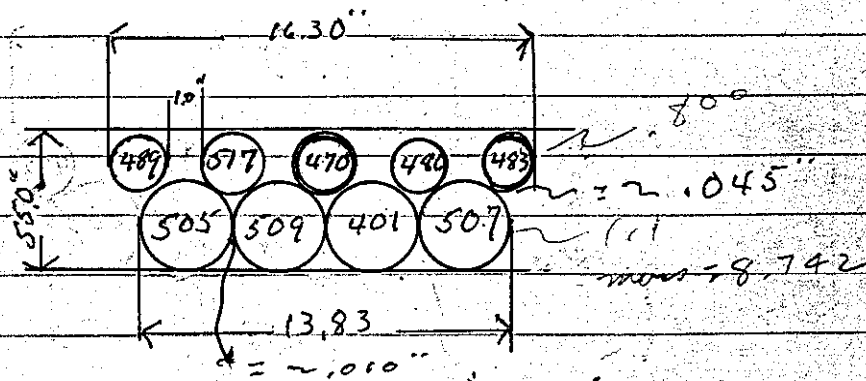 16.30"
.80"
489 517 470 486 483
= ~ .045"
505 509 401 507
mass = 8.742
13.83
= ~ .010"